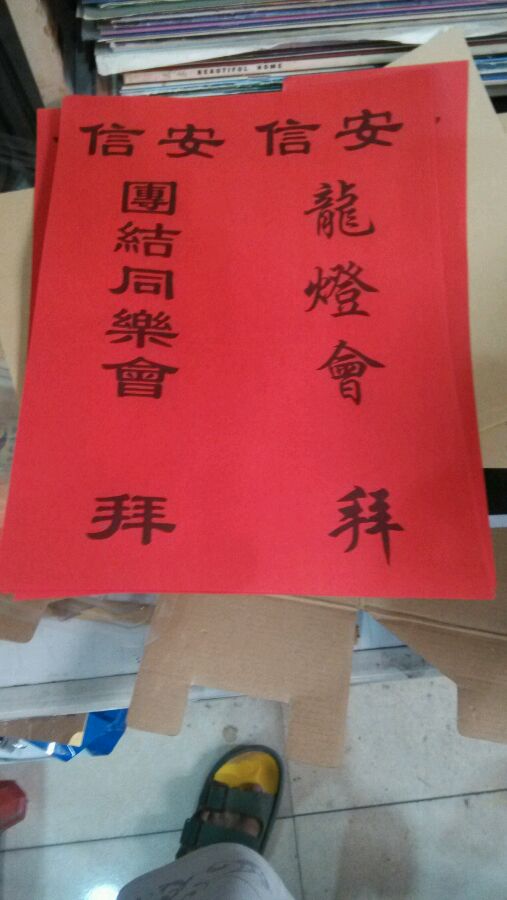 BEAUTIFUL HOME
信安
龍燈會
拜
信安
團結同樂會
拜